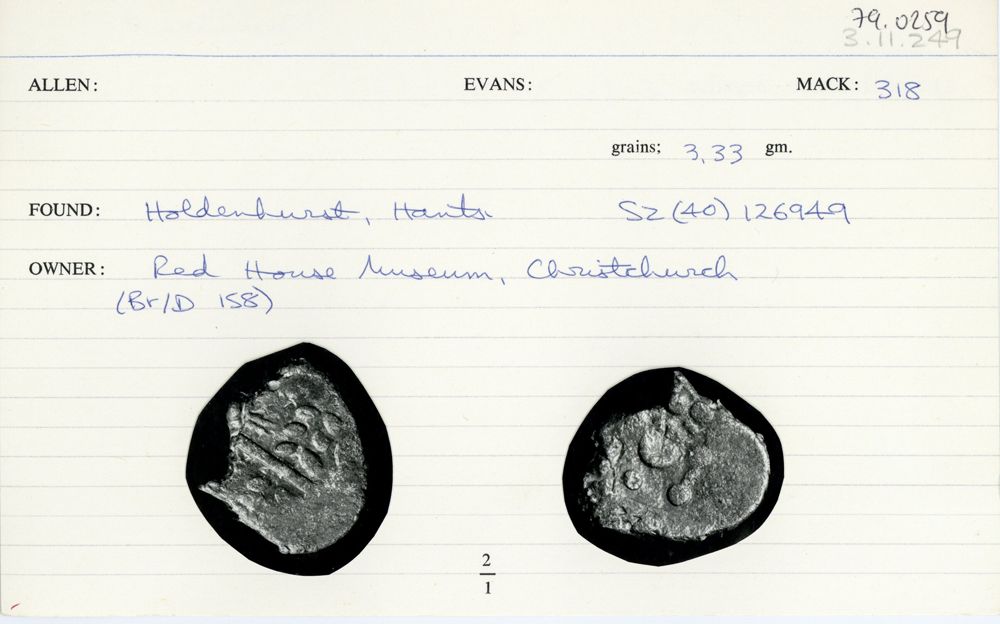 79.0259
3.11.249
ALLEN: EVANS: MACK: 318
grains; 3.33 gm.
FOUND: Holdenhurst, Hants. SZ (40) 126949
OWNER: Red House Museum, Christchurch
(Br/D 158)
2
1